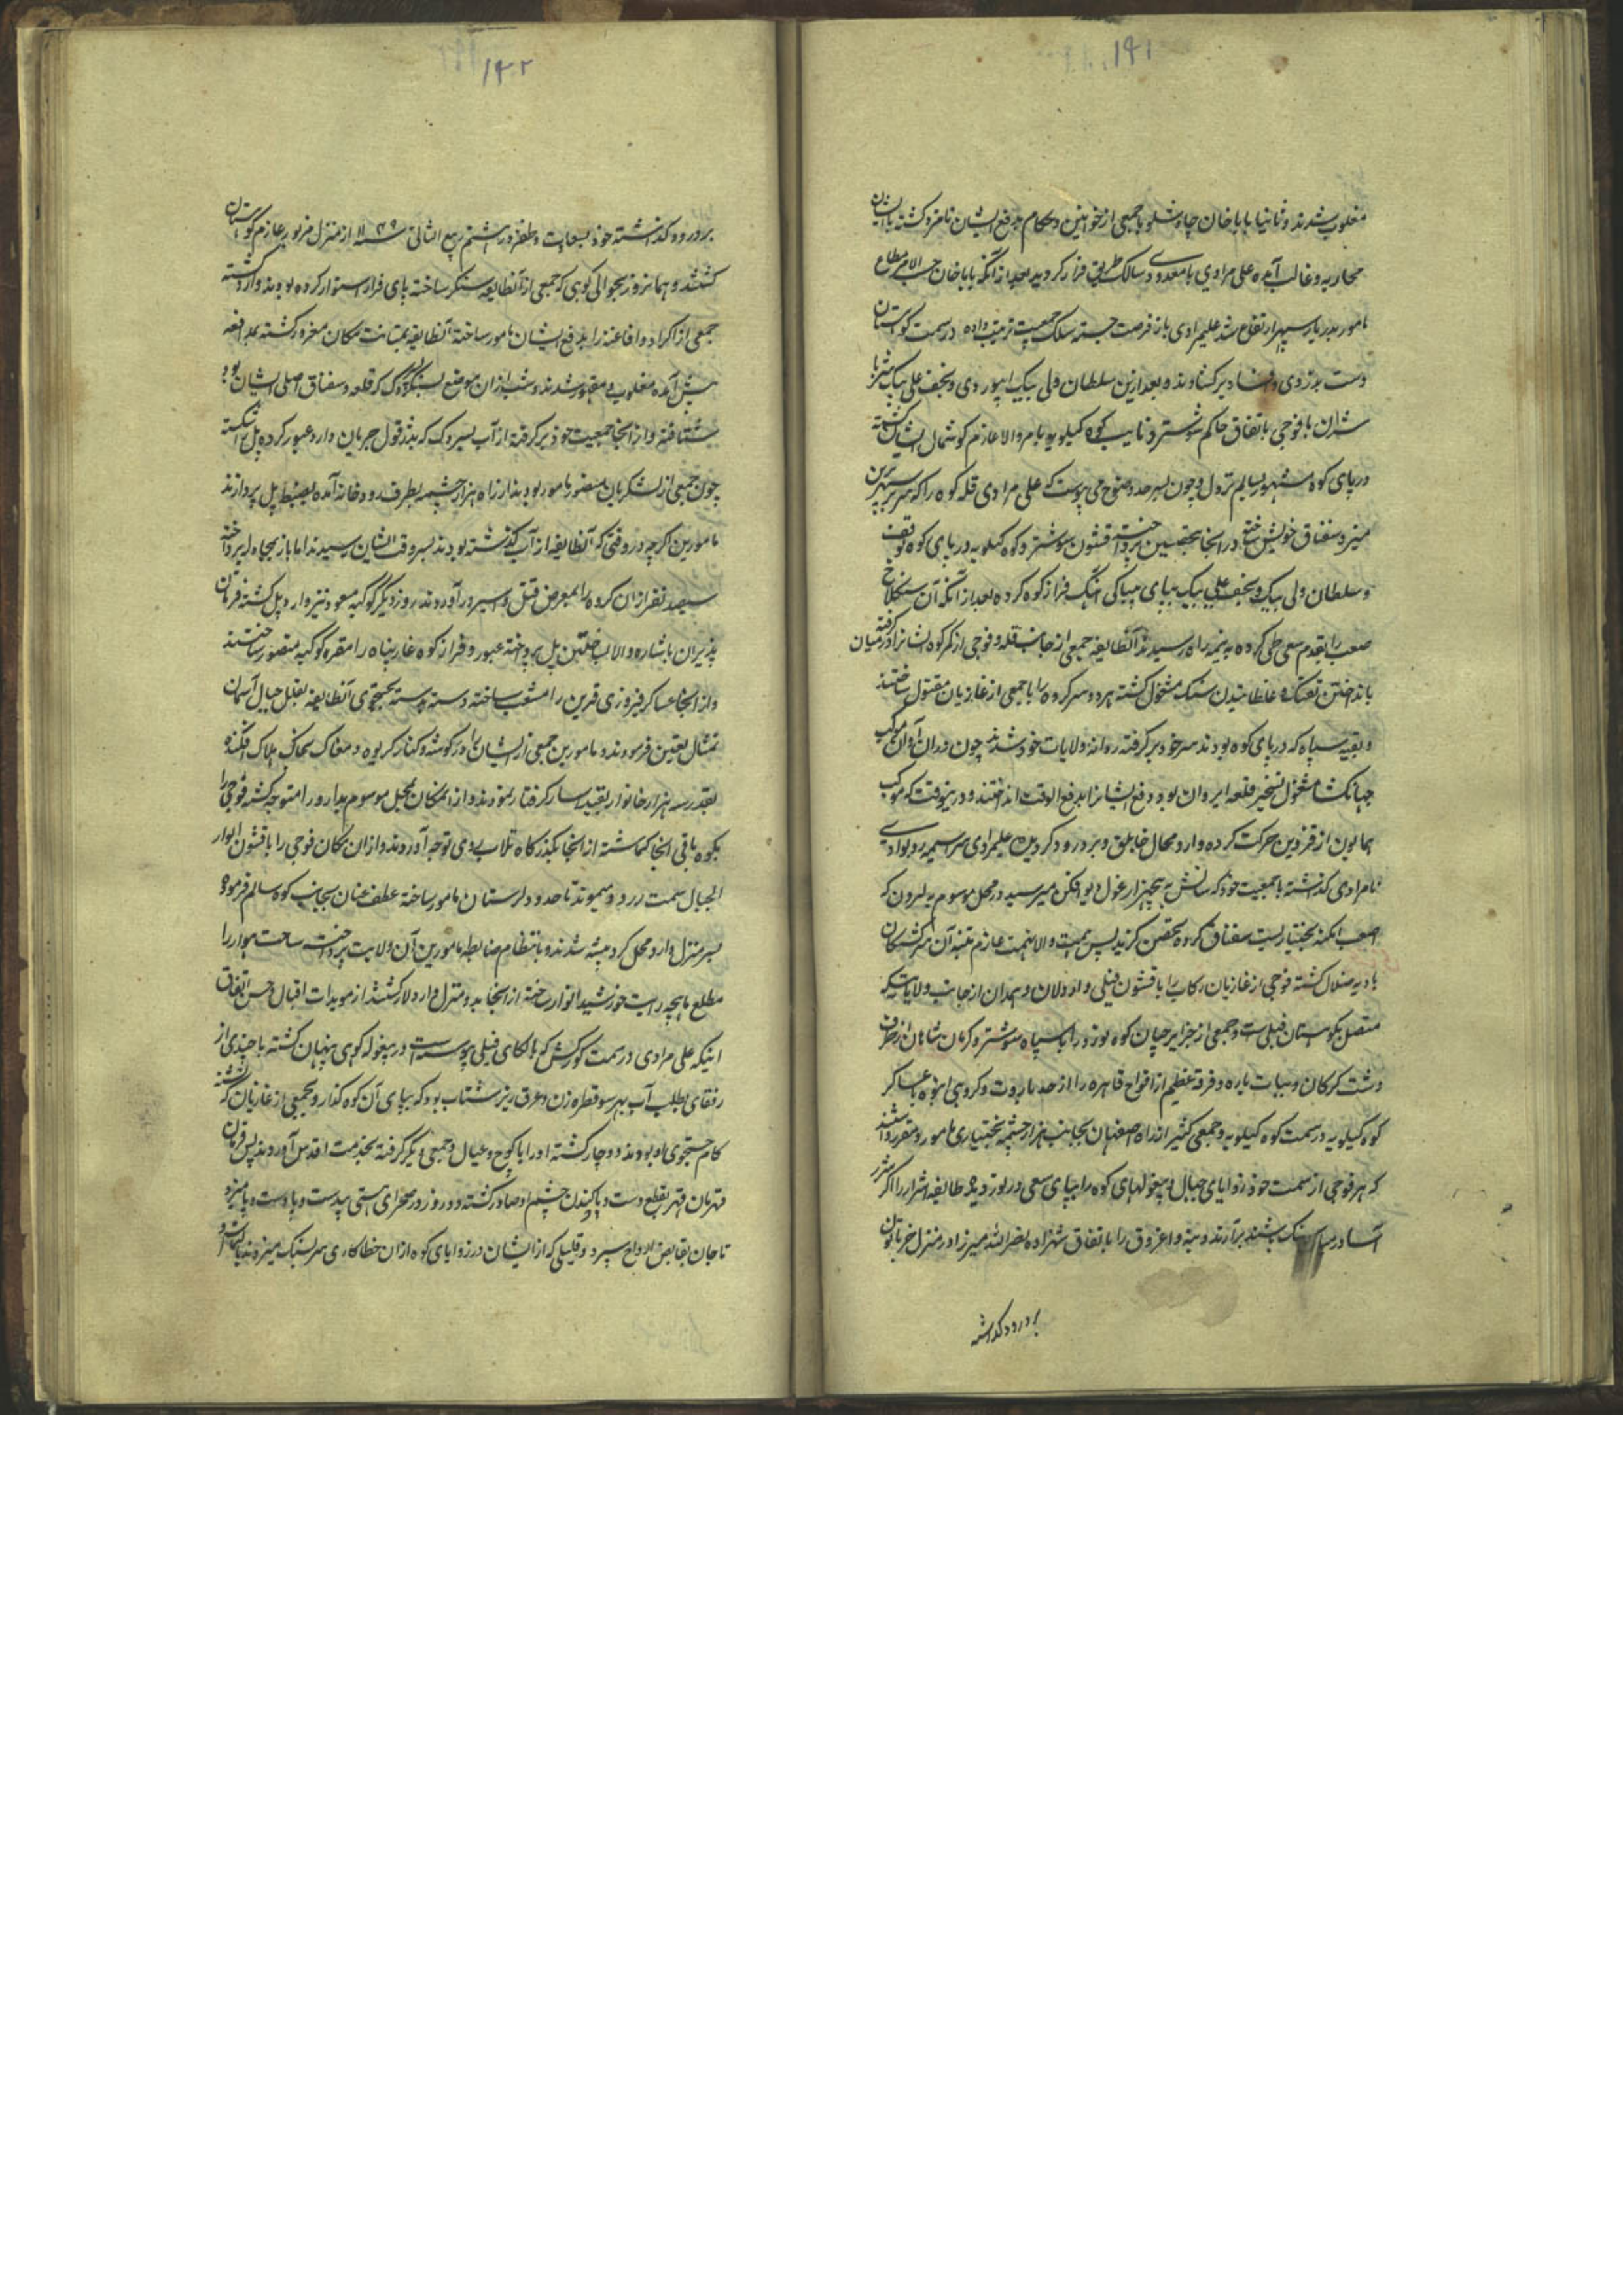 ۱۴۱
مغلوب شدند و ثانیا بابا خان چاوشلو با جمعی از خوانین و حکام بدفع ایشان نامزد کشته با ایشان
محاربه و غالب آمده علی مرادی با معدودی سالک طریق فرار کردید بعد از آنکه بابا خان حسب الامر مطاع
مامور بدربار سپهر ارتفاع شد علیمرادی باز فرصت جسته سلک جمعیت ترتیب داده در سمت کوهستان
دست بدزدی و فساد برکشادند و بعد ازین سلطان ولی بیک ابیوردی و نجف علی بیک
با فوجی باتفاق حاکم شوشتر و نایب کوه کیلویه بامر والا عازم کوشمال ایشان کشته
در پای کوه مشهور بسالم نزول و چون بسرحد وضوح می پیوست که علی مرادی قله کوه را که
مقر و سغناق خویش ساخته در آنجا بتحصین پرداخته قشون شوشتر و کوه کیلویه در پای کوه توقف
و سلطان ولی بیک و نجف علی بیک بپای بیباکی آهنک فراز کوه کرده بعد از آنکه آن سنکلاخ
صعب را بقدم سعی طی کرده به نیمه راه رسیدند آنطایفه جمعی از جانب قله و فوجی از کمر کوه ایشانرا در میان کرفته
بانداختن تفنک و غلطانیدن سنک مشغول کشته هر دو سر کرده را با جمعی از غازیان مقتول ساختند
و بقیه سپاه که در پای کوه بودند سر خود بر کرفته روانه ولایات خود شدند چون در آن اوان موکب
جهانکشا مشغول تسخیر قلعه ایروان بود دفع ایشانرا بدفع الوقت انداختند و درینوقت که موکب
همایون از قزوین حرکت کرده وارد محال جاپلق و بروجرد کردید علیمرادی سراسیمه رو بوادی
نامرادی کذاشته با جمعیت خود که سانش به پنجهزار غول دیو افکن میرسید در محل موسوم به لیرون که
اصعب امکنه بختیاریست سغناق کرده تحصن کزید پس همت والا نهمت عازم تنبیه آن سرکشتکان
بادیه ضلال کشته فوجی از غازیان رکاب را با قشون فیلی و اردلان و همدان از جانب ولایاتیکه
متصل بکوهستان فیلیست و جمعی از جزایرچیان کوه نورد را با سپاه شوشتر و کرمانشاهان از طرف
دشت کرکان و بیات پاره و فرقه عظیم از افواج قاهره را از حد باروت و کروهی انبوه با عساکر
کوه کیلویه در سمت کوه کیلویه و جمعی کثیر از راه اصفهان بجانب هزار چشمه بختیاری مامور و مقرر داشتند
که هر فوجی از سمت خود زوایای جبال و بیغولهای کوه را بپای سعی درنوردیده طایفه اشرار را اکر شرر
آسا در میان سنک باشند برآرند و بنه و اغروق را باتفاق شهزاده نصر الله میرزا در منزل خربانون
بدرود کذاشته
۱۴۲
بدرود کذاشته خود بسعادت و ظفر در ششم ربیع الثانی سنه ۱۱۴۹ از منزل مزبور عازم کوهستان
کشتند و همانروز بحوالی کوهی که جمعی از آنطایفه سنکر ساخته پای قرار استوار کرده بودند وارد کشته
جمعی از اکراد و افاغنه را بدفع ایشان مامور ساخته آنطایفه بمتانت مکان مغرور کشته بمدافعه
پیش آمده مغلوب و مقهور شدند و شب از آن موضع که قلعه و سغناق اصلی ایشان بود
شتافته و از آنجا جمعیت خود بر کرفته از آب بسروک که بدزفول جریان دارد عبور کرده پل را شکسته
چون جمعی از لشکریان منصور مامور بودند از راه هزار چشمه بطرف رودخانه آمده بضبط پل پردازند
مامورین اکرچه در وقتی که آنطایفه از آب کذشته بودند بسروقت ایشان رسیدند اما باز بمحاربه پرداخته
سیصد نفر از آن کروه را بمعرض قتل و اسیر درآوردند روز دیکر کوکبه مسعود نیز وارد پل کشته فرمان
پذیران باشاره والا بساختن پل پرداخته عبور و فراز کوه را مقر کوکبه منصور ساختند
و از آنجا عساکر فیروزی قرین را منشعب ساخته دسته دسته بجستجوی آنطایفه بقلل جبال آسمان
تمثال تعیین فرمودند و مامورین جمعی از ایشان را در کوشه و کنار کریوه و مغاک بخاک هلاک افکنده
بقدر سه هزار خانوار بقید اسار کرفتار نمودند و از آن مکان بمحل موسوم بدارورا متوجه کشته فوجی را
بکوه باقی آنجا کماشته از آنجا بکذرکاه تلاب رو می توجه آوردند و از آن مکان فوجی را با قشون الوار
الجبال سمت ررد و میموند تا حدود لرستان مامور ساخته عطف عنان بجانب کوه سالم فرموده
بسر منزل وارد محل کرد بیشه شدند و بانتظام ضابطه مامورین آن ولایت پرداخته ساحت هموار را
مطلع ماهچه رایت خورشید انوار ساخته از آنجا بدو منزل وارد لار کشتند از مویدات اقبال و حسن اتفاق
اینکه علی مرادی در سمت کورکش که بالکای فیلی پیوسته است در بیغوله کوهی پنهان کشته با چندی از
رفقای بطلب آب بهر سو قطره زن و عرق ریز شتاب بود که بپای آن کوه کذار و بجمعی از غازیان که تشنه
کام جستجوی او بودند دوچار کشته او را با کوچ و عیال و جمعی دیکر کرفته بخدمت اقدس آوردند پس فرمان
قهرمان قهر بقطع دست و پا و کندن چشم او صادر کشته دو روز در صحرای هستی بیدست و پا دست و پا میزد
تا جان بقابض ارواح سپرد و قلیلی که از ایشان در زوایای کوه از آن خطاکاری سر بسنک میزدند